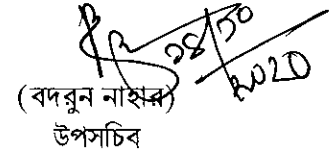 ২৪/১০
২০২০
(বদরুন নাহার)
উপসচিব